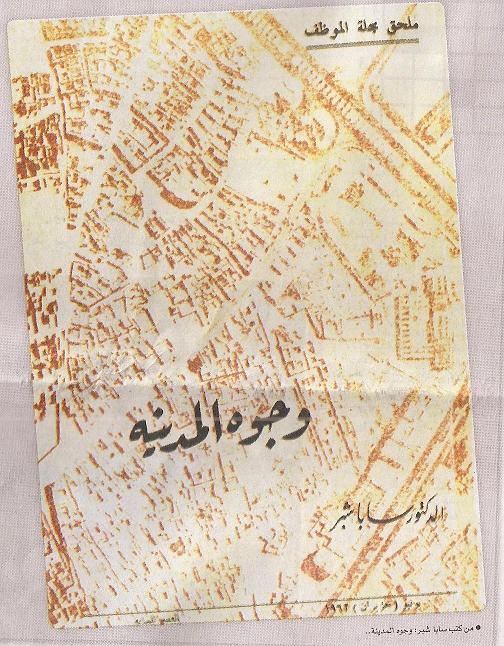 ملحق مجلة الموظف
وجوه المدينه
الدكتور سابا شبر
يونيو (حزيران) ١٩٦٢
● من كتب سابا شبر: وجوه المدينة..